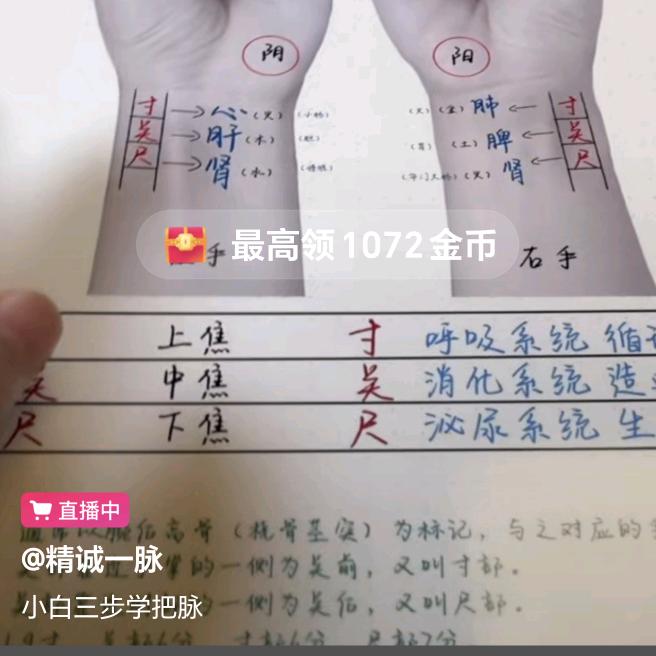 阴
阳
寸
心(火)(小肠)
关
肝(木)(胆)
尺
肾(水)
(金)肺
寸
(胃)(土)脾
关
(火)肾
尺
最高领1072金币
手
右手
上焦 寸 呼吸系统 循
关 中焦 关 消化系统 造
尺 下焦 尺 泌尿系统 生
直播中
高骨(桡骨茎突)为标记,与之对应的
@精诚一脉
的一侧为关前,又叫寸部。
小白三步学把脉
一侧为关后,又叫尺部。